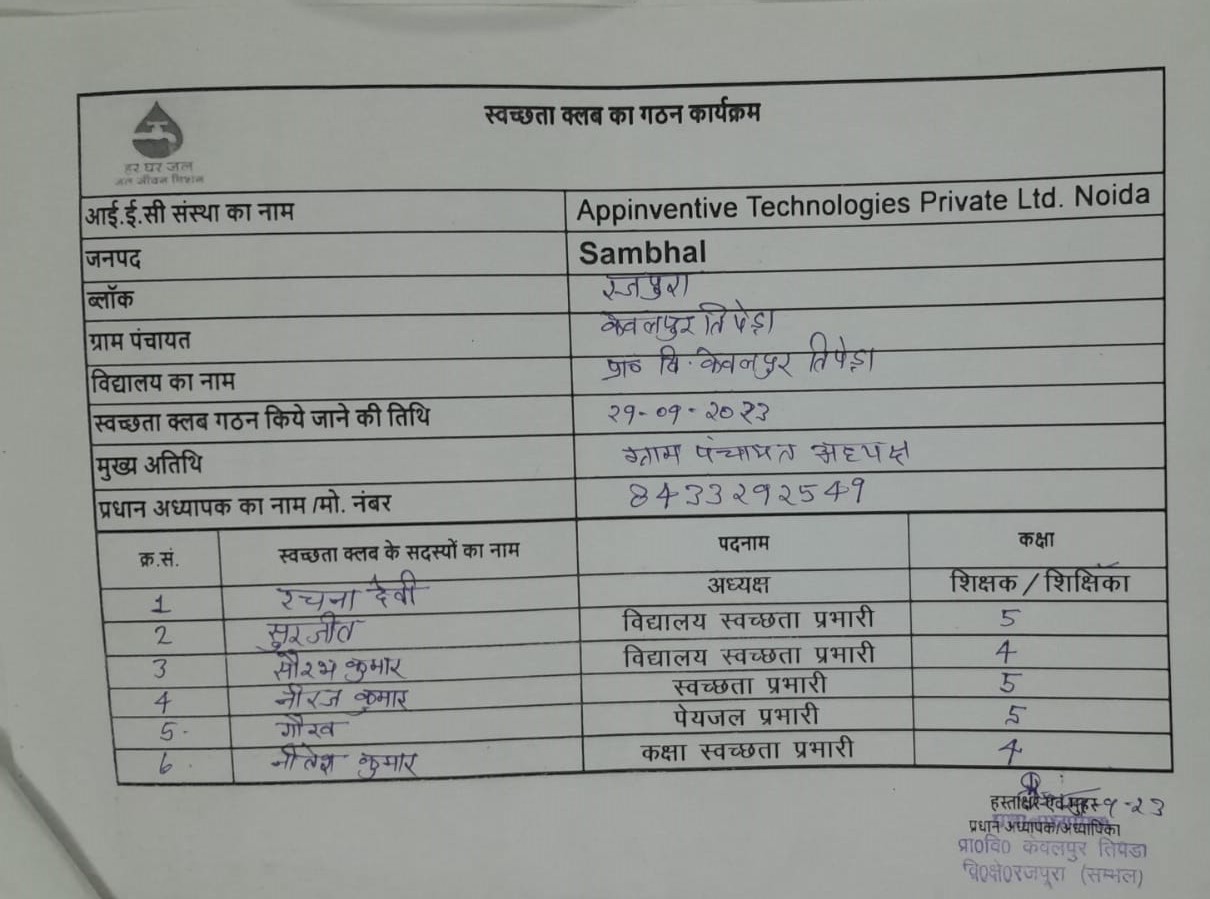 स्वच्छता क्लब का गठन कार्यक्रम
हर घर जल
जल जीवन मिशन
आई.ई.सी संस्था का नाम Appinventive Technologies Private Ltd. Noida
जनपद Sambhal
ब्लॉक रजपुरा
ग्राम पंचायत केवलपुर तिपेड़ा
विद्यालय का नाम प्रा० वि. केवलपुर तिपेड़ा
स्वच्छता क्लब गठन किये जाने की तिथि २9-०9-२०२3
मुख्य अतिथि ग्राम पंचायत अध्यक्ष
प्रधान अध्यापक का नाम /मो. नंबर 8433292549
क्र.सं. स्वच्छता क्लब के सदस्यों का नाम पदनाम कक्षा
1 रचना देवी अध्यक्ष शिक्षक / शिक्षिका
2 सुरजीत विद्यालय स्वच्छता प्रभारी 5
3 सौरभ कुमार विद्यालय स्वच्छता प्रभारी 4
4 नीरज कुमार स्वच्छता प्रभारी 5
5. गौरव पेयजल प्रभारी 5
6. नीतेश कुमार कक्षा स्वच्छता प्रभारी 4
हस्ताक्षर एवं मुहर 9-23
प्रधान अध्यापक/अध्यापिका
प्रा0वि0 केवलपुर तिपेडा
वि0क्षे0रजपुरा (सम्भल)